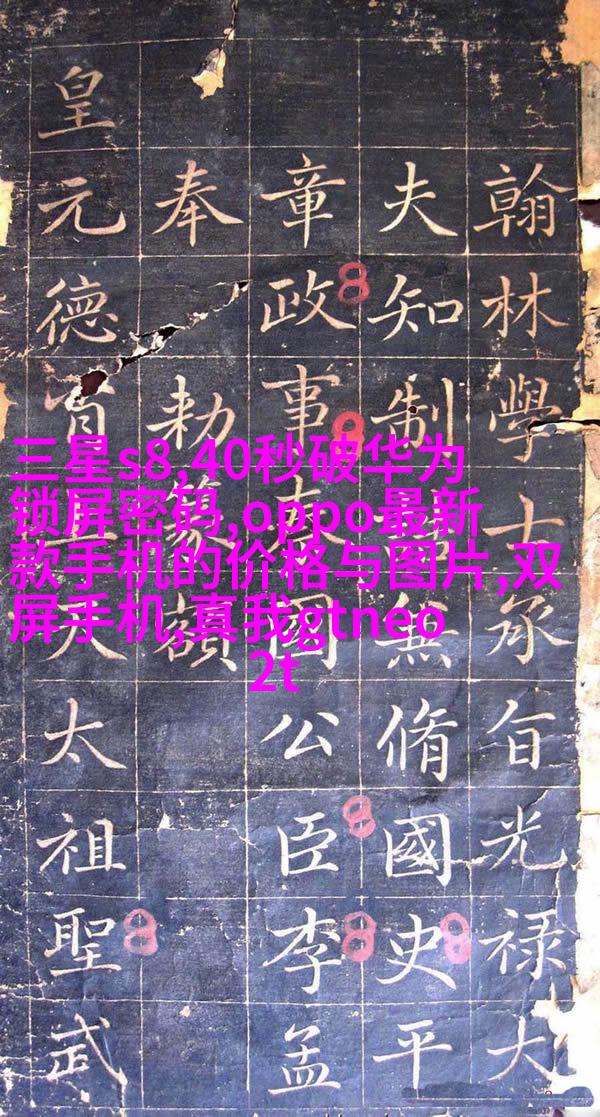 翰林學士承旨光禄大
夫知制誥兼脩國史平
章政事秦國公臣李孟
奉勑篆額
皇元德天太祖聖武
三星s8,40秒破华为
锁屏密码,oppo最新
款手机的价格与图片,双
屏手机,真我gtneo
2t